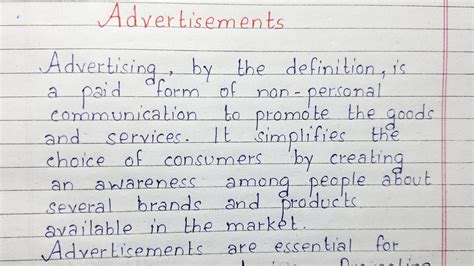 Advertisements
Advertising, by the definition, is
a paid form of non-personal
communication to promote the goods
and services. It simplifies the
choice of consumers by creating
an awareness among people about
several brands and products
available in the market.
Advertisements are essential for